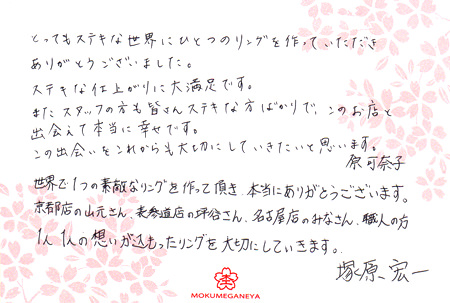 とってもステキな世界にひとつのリングを作っていただき
ありがとうございました。
ステキな仕上がりに大満足です。
またスタッフの方も皆さんステキな方ばかりで、このお店と
出会えて本当に幸せです。
この出会いをこれからも大切にしていきたいと思います。
原可奈子
世界で1つの素敵なリングを作って頂き、本当にありがとうございます。
京都店の山元さん、表参道店の坪谷さん、名古屋店のみなさん、職人の方
1人1人の想いが込もったリングを大切にしていきます。
塚原宏一
MOKUMEGANEYA